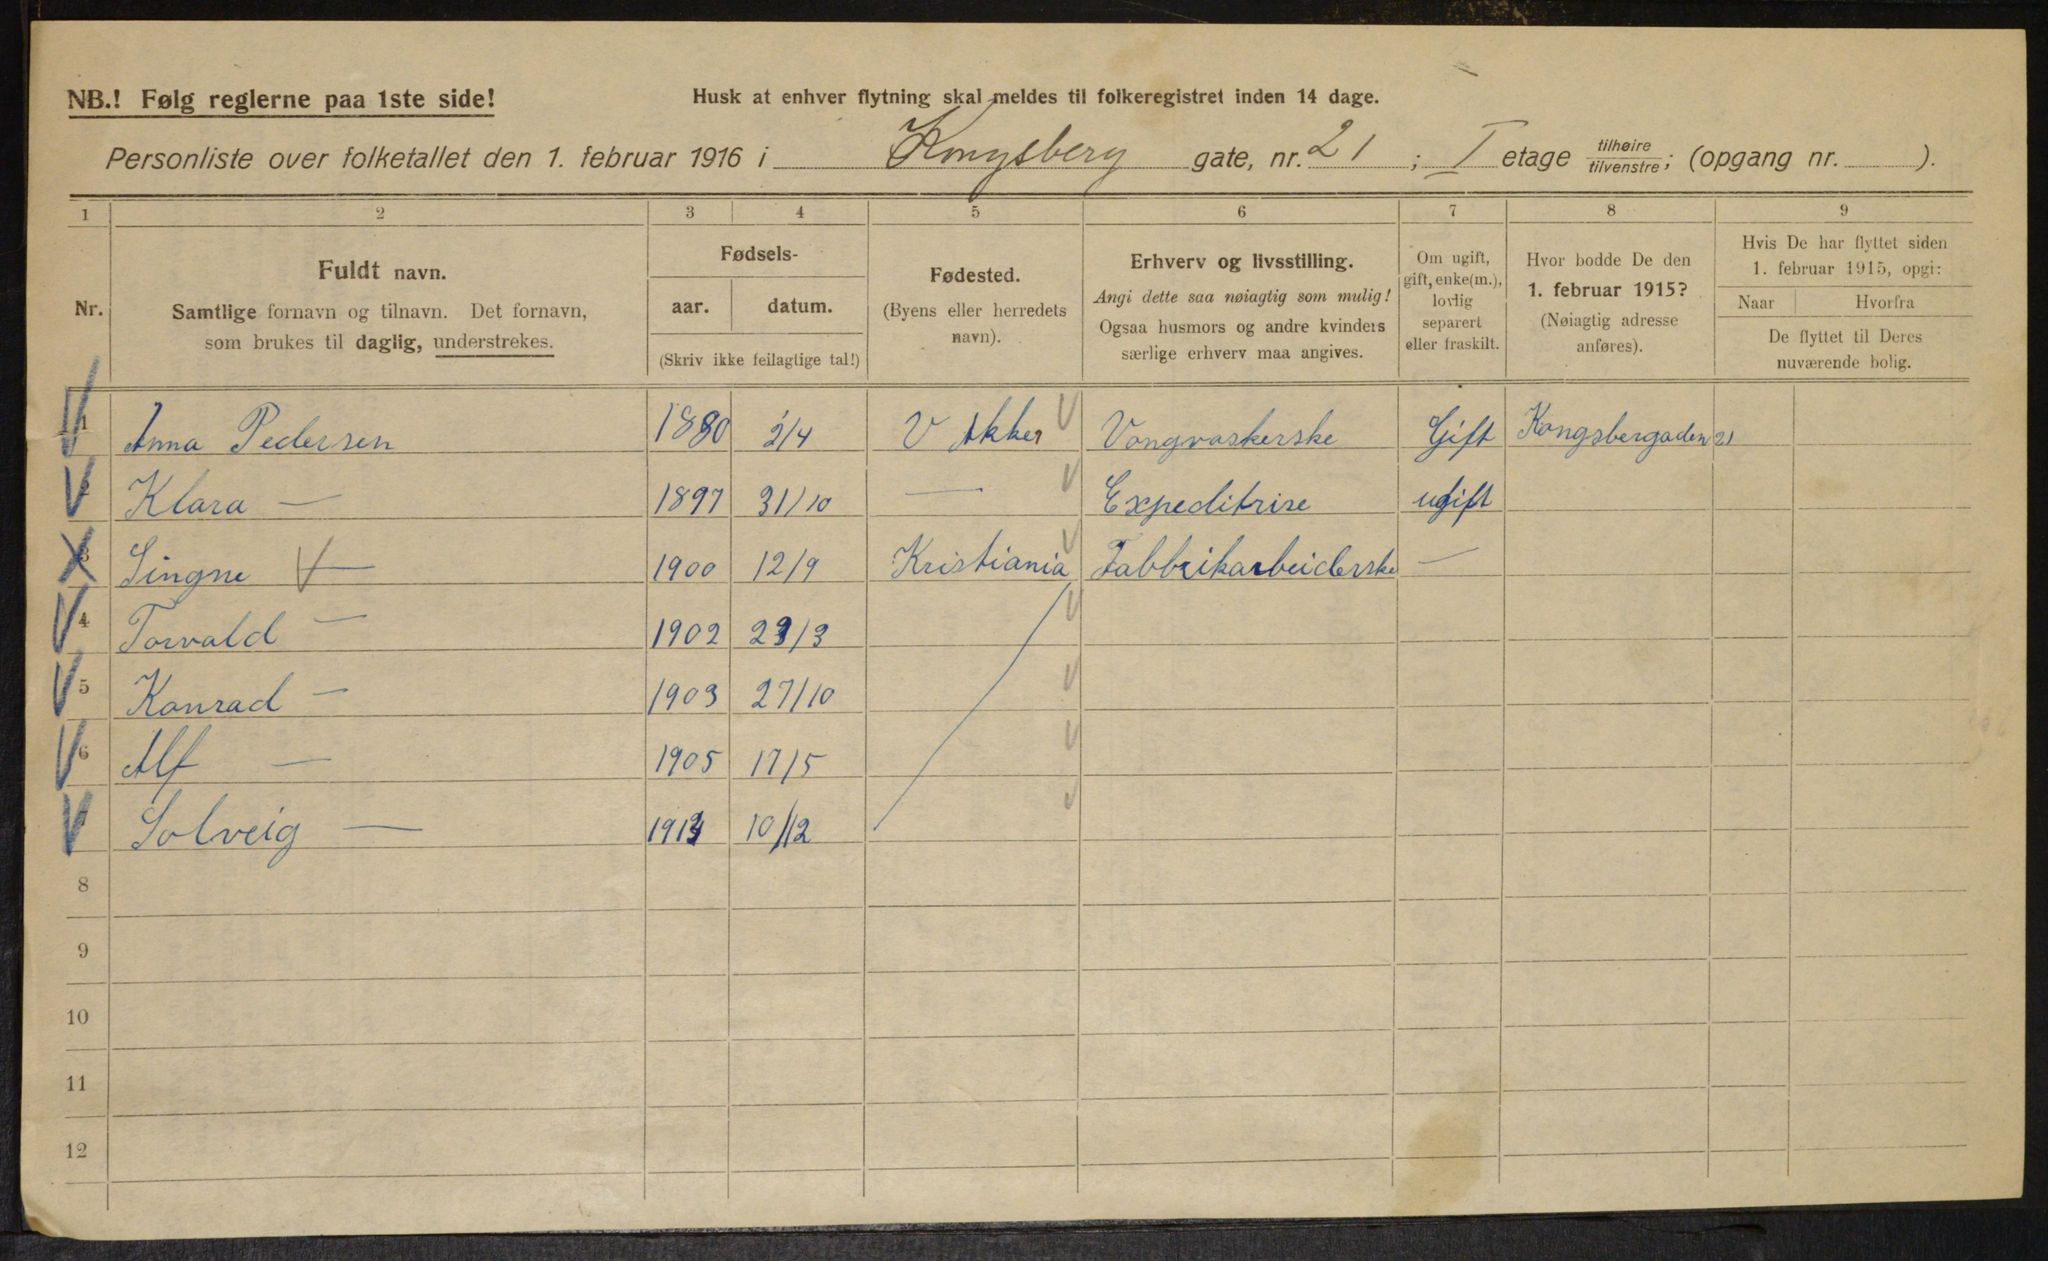 NB.! Følg reglerne paa 1ste side!
Husk at enhver flytning skal meldes til folkeregistret inden 14 dage.
Personliste over folketallet den 1. februar 1916 i Kongsberg gate, nr. 21 ; I etage tilhøire/tilvenstre; (opgang nr. ).
1 2 3 4 5 6 7 8 9
Nr.
Fuldt navn.
Samtlige fornavn og tilnavn. Det fornavn,
som brukes til daglig, understrekes.
Fødsels-
aar. datum.
(Skriv ikke feilagtige tal!)
Fødested.
(Byens eller herredets
navn).
Erhverv og livsstilling.
Angi dette saa nøiagtig som mulig!
Ogsaa husmors og andre kvinders
særlige erhverv maa angives.
Om ugift,
gift, enke(m.),
lovlig
separert
eller fraskilt.
Hvor bodde De den
1. februar 1915?
(Nøiagtig adresse
anføres).
Hvis De har flyttet siden
1. februar 1915, opgi:
Naar Hvorfra
De flyttet til Deres
nuværende bolig.
1 Anna Pedersen 1880 2/4 V Akker Vongvaskerske Gift Kongsbergaden 21
Klara — 1897 31/10 — Expeditrise ugift
3 Singne — 1900 12/9 Kristiania Fabbrikarbeiderske —
4 Torvald — 1902 23/3
5 Konrad — 1903 27/10
6 Alf — 1905 17/5
Solveig — 10/12
8
9
10
11
12